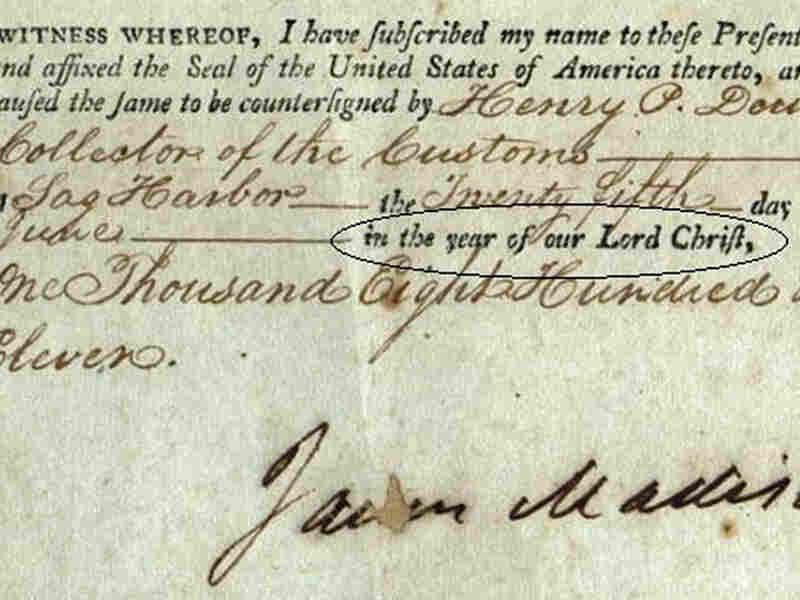 WITNESS WHEREOF, I have ſubſcribed my name to theſe Preſent
nd affixed the Seal of the United States of America thereto, an
auſed the ſame to be counterſigned by Henry P. Dou
Collector of the Customs
Sag Harbor the Twenty fifth day
June in the year of our Lord Chriſt,
One Thousand Eight Hundred
Eleven.
James Madis